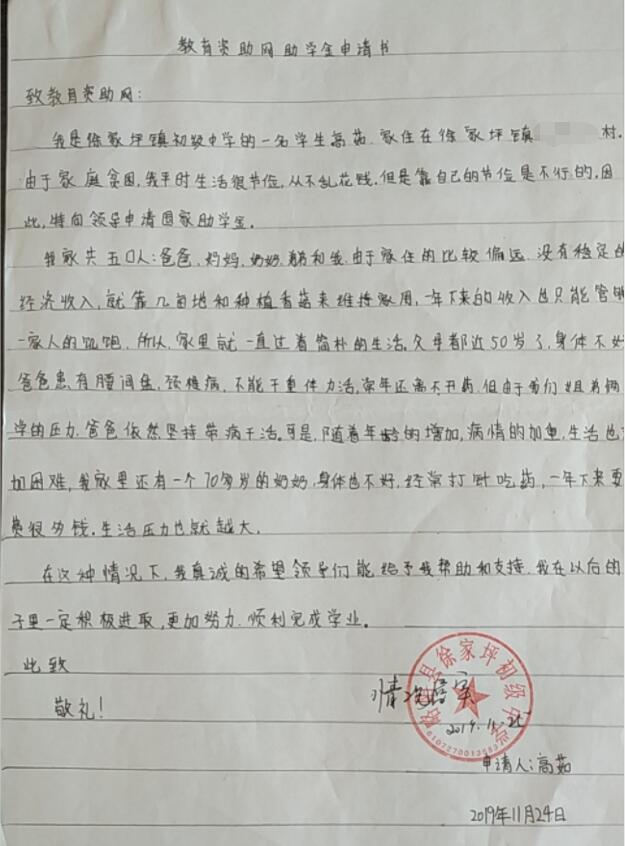 教育资助网助学金申请书
致教育资助网:
我是徐家坪镇初级中学的一名学生高茹.家住在徐家坪镇 村.
由于家庭贫困,我平时生活很节俭,从不乱花钱.但是靠自己的节俭是不行的,因
此,特向领导申请国家助学金。
我家共五口人:爸爸、妈妈、奶奶、弟弟和我.由于家住的比较偏远.没有稳定的
经济收入,就靠几亩地和种植香菇来维持家用,一年下来的收入也只能管够
一家人的饥饱.所以,家里就一直过着简朴的生活。父母都近50岁了,身体不好
爸爸患有腰间盘,颈椎病,不能干重体力活,常年还离不开药.但由于我们姐弟俩
学的压力.爸爸依然坚持带病干活.可是,随着年龄的增加,病情的加重,生活也
加困难,我家里还有一个70多岁的奶奶,身体也不好,经常打针吃药,一年下来要
费很多钱.生活压力也就越大.
在这种情况下,我真诚的希望领导们能给予我帮助和支持.我在以后的
子里一定积极进取,更加努力.顺利完成学业。
此致
敬礼!
情况属实
县徐家坪初级中学
2019.11.25
申请人:高茹
2019年11月24日